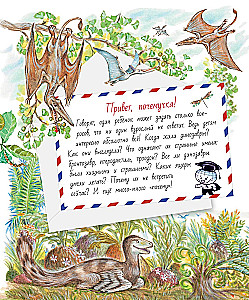 Привет, почемучка!
Говорят, один ребёнок может задать столько воп-
росов, что ни один взрослый не ответит. Ведь детям
интересно абсолютно всё! Когда жили динозавры?
Как они выглядели? Что означают их странные имена:
бронтозавр, игуанодон, троодон? Все ли динозавры
были хищными и страшными? Какие ящеры
умели летать? Почему их не вернуть
сейчас? И ещё много-много «почему»!